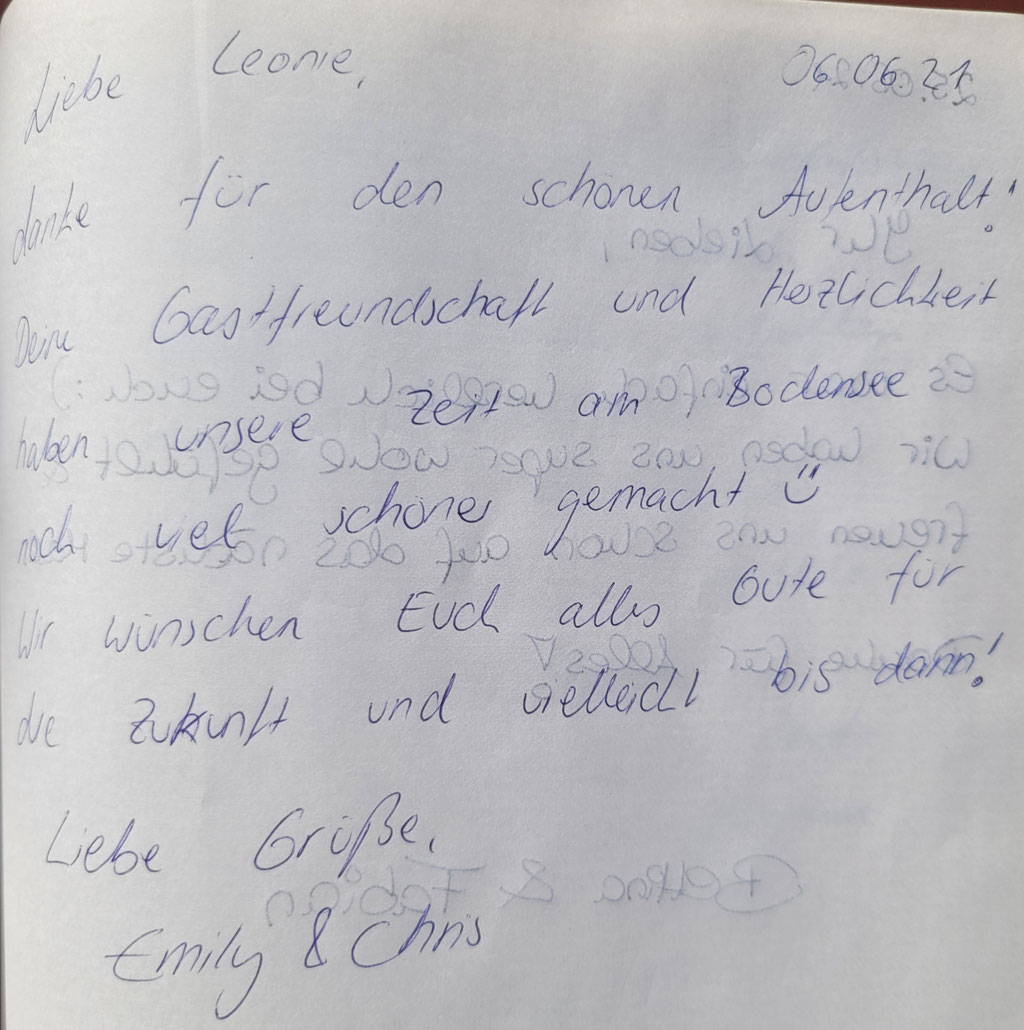 Liebe Leonie, 06.06.21
danke für den schönen Aufenthalt!
Deine Gastfreundschaft und Herzlichkeit
haben unsere Zeit am Bodensee
noch viel schöner gemacht Ü
Wir wünschen Euch alles Gute für
die Zukunft und vielleicht bis dann!
Liebe Grüße,
Emily & Chris